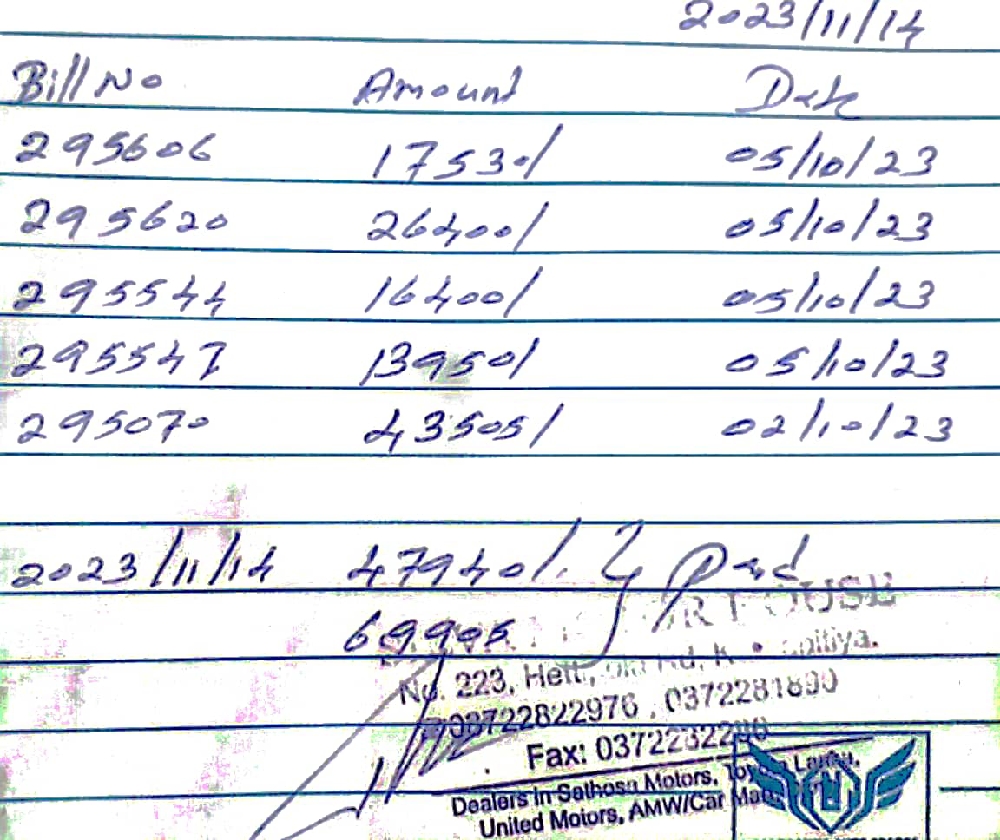 2023/11/14
Bill No Amount Date
295606 17530/ 05/10/23
295620 26400/ 05/10/23
295544 16400/ 05/10/23
295547 13950/ 05/10/23
295070 43505/ 02/10/23
2023/11/14 47940/. } Paid
69905
HOUSE
No. 223,
03722822976, 0372281890
Fax:
Dealers in Sathosa Motors, Toyota Lanka,
United Motors, AMW/Car